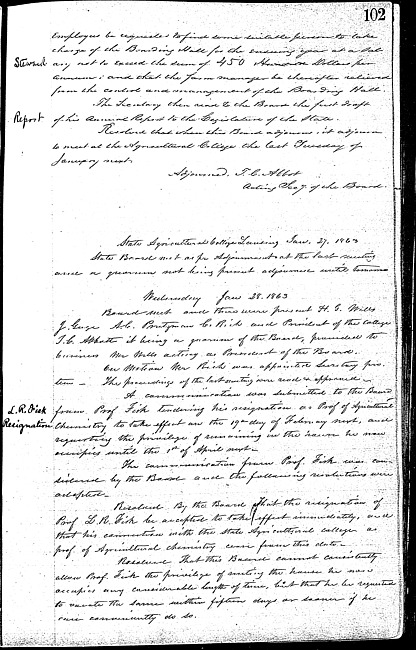 102
employee be requested to find some suitable person to take
charge of the Boarding Hall for the ensuing year at a Sal-
Steward
ary not to exceed the sum of 450 Hundred Dollars per
annum; and that the farm manager be thereafter relieved
from the control and management of the Boarding Hall.
The Secretary then read to the Board the first draft
Report
of his Annual Report to the Legislature of the State.
Resolved that when this Board adjourns, it adjourn
to meet at the Agricultural College the last Tuesday of
January next.
Adjourned. T. C. Abbot
Acting Secy of the Board.
State Agricultural College Lansing Jan. 27, 1863
State Board met as per adjournment at the last meeting
and a quorum not being present adjourned until tomorrow
Wednesday Jan 28. 1863
Board met and there were present H. G. Wells
J. Gunn A.C. Prutzman C. Rich and President of the College
T.C. Abbot it being a quorum of the Board, proceeded to
business Mr Wells acting as President of the Board.
On Motion Mr Rich was appointed Secretary pro.
tem — The proceedings of the last meeting were read & approved.
A communication was submitted to the Board
L. R. Fisk
from Prof Fisk tendering his resignation as Prof of Agricultural
Resignation
Chemistry to take effect on the 19th day of February next, and
requesting the privilege of remaining in the house he now
occupies until the 1st of April next.
The communication from Prof. Fisk was con-
sidered by the Board and the following resolutions were
adopted.
Resolved By the Board That the resignation of
Prof L. R. Fisk be accepted to take effect immediately, and
that his connection with the State Agricultural College as
prof of Agricultural chemistry cease from this date.
Resolved That this Board cannot consistently
allow Prof. Fisk the privilege of renting the house he now
occupies any considerable length of time, but that he be requested
to vacate the same within fifteen days or sooner if he
can conveniently do so.